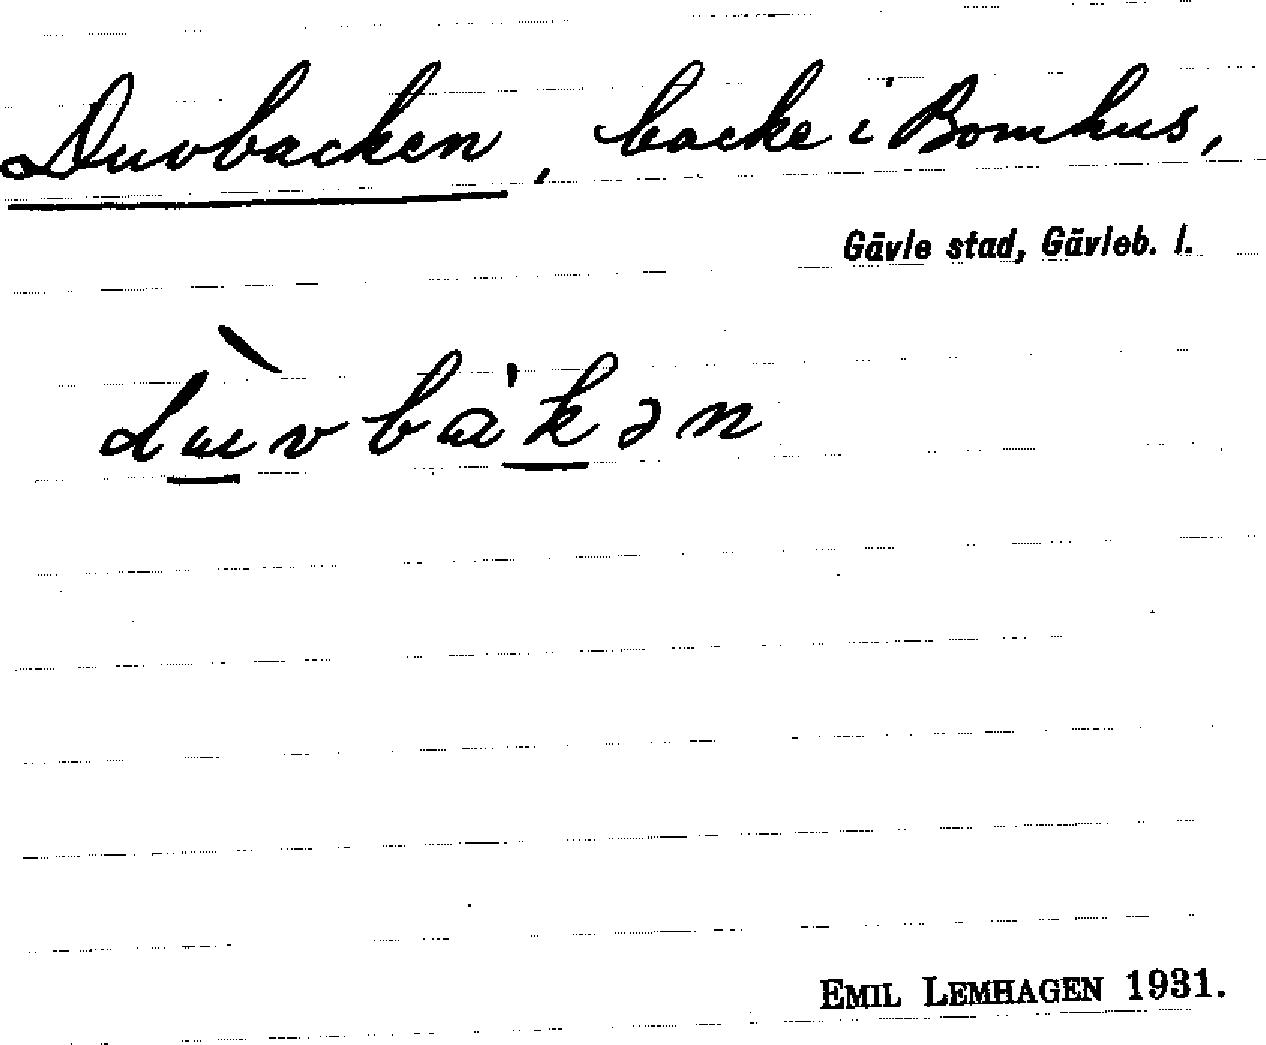 Duvbacken, backe i Bomhus,
Gävle stad, Gävleb. l.
dùvbàkən
EMIL LEMHAGEN 1931.